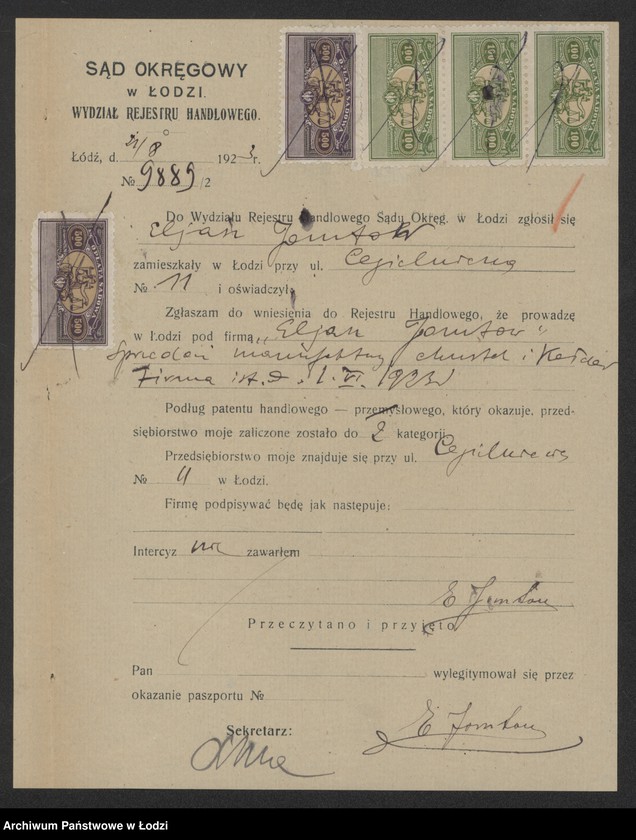 SĄD OKRĘGOWY
w ŁODZI.
WYDZIAŁ REJESTRU HANDLOWEGO.
Łódź, d. 21/8 1923 r.
№ 9889/2
500 500
100 100
100 100
100 100
OPŁATA SĄDOWA
500 500
Do Wydziału Rejestru Handlowego Sądu Okręg. w Łodzi zgłosił się
Eljasz Jomtow
zamieszkały w Łodzi przy ul. Cegielniana
№ 11 i oświadczył:
Zgłaszam do wniesienia do Rejestru Handlowego, że prowadzę
w Łodzi pod firmą „Eljasz Jomtow"
Sprzedaż manufaktury chustek i
Firma ist. od 1. VI. 1923
Podług patentu handlowego — przemysłowego, który okazuje, przed-
siębiorstwo moje zaliczone zostało do 2 kategorji.
Przedsiębiorstwo moje znajduje się przy ul. Cegielniana
№ 11 w Łodzi.
Firmę podpisywać będę jak następuje:
Intercyz nie zawarłem
E Jomtow
Przeczytano i przyjęto
Pan wylegitymował się przez
okazanie paszportu №
E Jomtow
Sekretarz:
Archiwum Państwowe w Łodzi